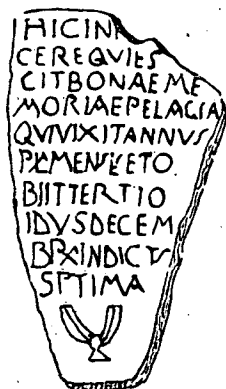 HICIN
CEREQVIES
CITBONAEME
MORIAEPELAGIA
QVIVIXITANNVS
PLMENSETO
BIITTERTIO
IDVSDECEM
BRXINDICTV
SPTIMA